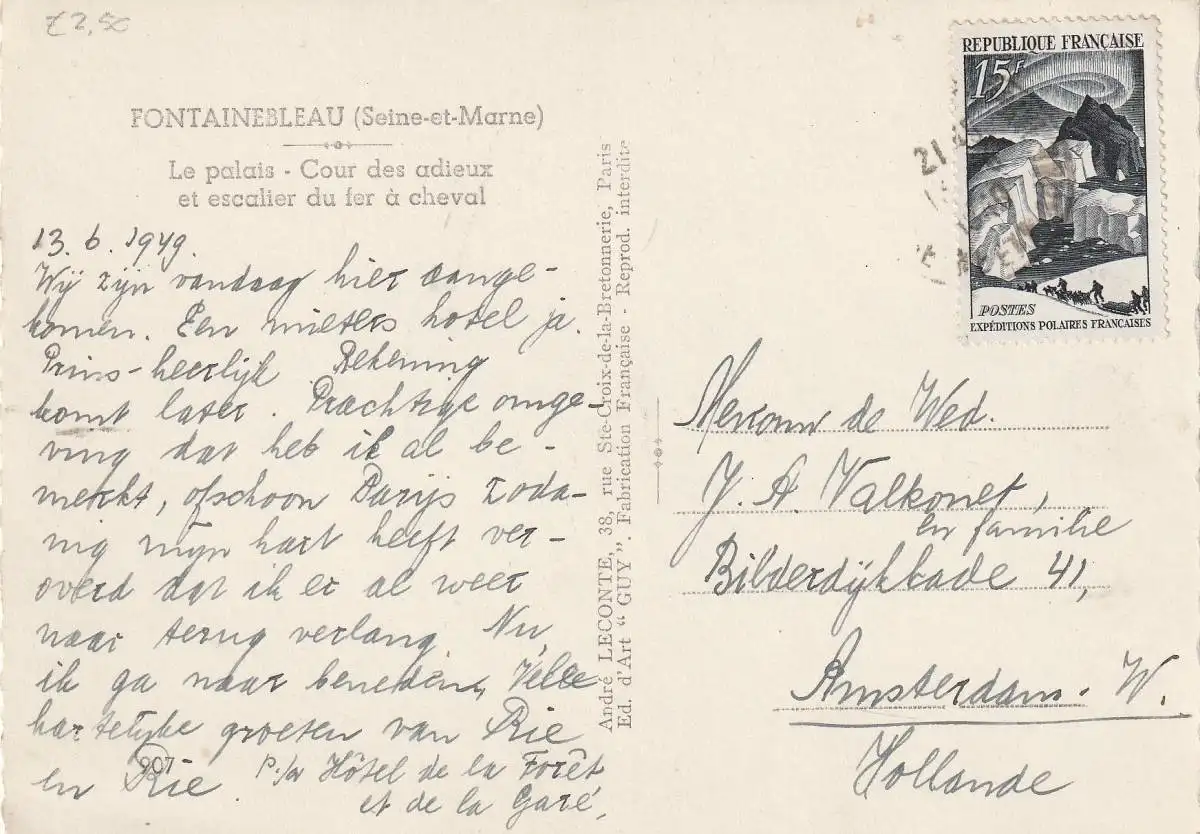 £2,50
FONTAINEBLEAU (Seine-et-Marne)
Le palais - Cour des adieux
et escalier du fer à cheval
13.6.1949.
Wij zijn vandaag hier aange-
komen. Een mieters hotel ja.
Prins-heerlijk Rekening
komt later. Prachtige omge-
ving dat heb ik al be-
merkt, ofschoon Parijs zoda-
nig mijn hart heeft ver-
overd dat ik er al weer
naar terug verlang. Nu,
ik ga naar beneden, Vele
hartelijke groeten van Rie
en Rie. p/a Hôtel de la Forêt
et de la Gare,
207
André LECONTE, 38, rue Ste-Croix-de-la-Bretonnerie, Paris
Ed. d'Art "GUY". Fabrication Française - Reprod. interdite
REPUBLIQUE FRANÇAISE
15F
POSTES
EXPÉDITIONS POLAIRES FRANCAISES
21
Mevrouw de Wed.
J. A. Valkonet,
en familie
Bilderdijkkade 41,
Amsterdam. W.
Hollande